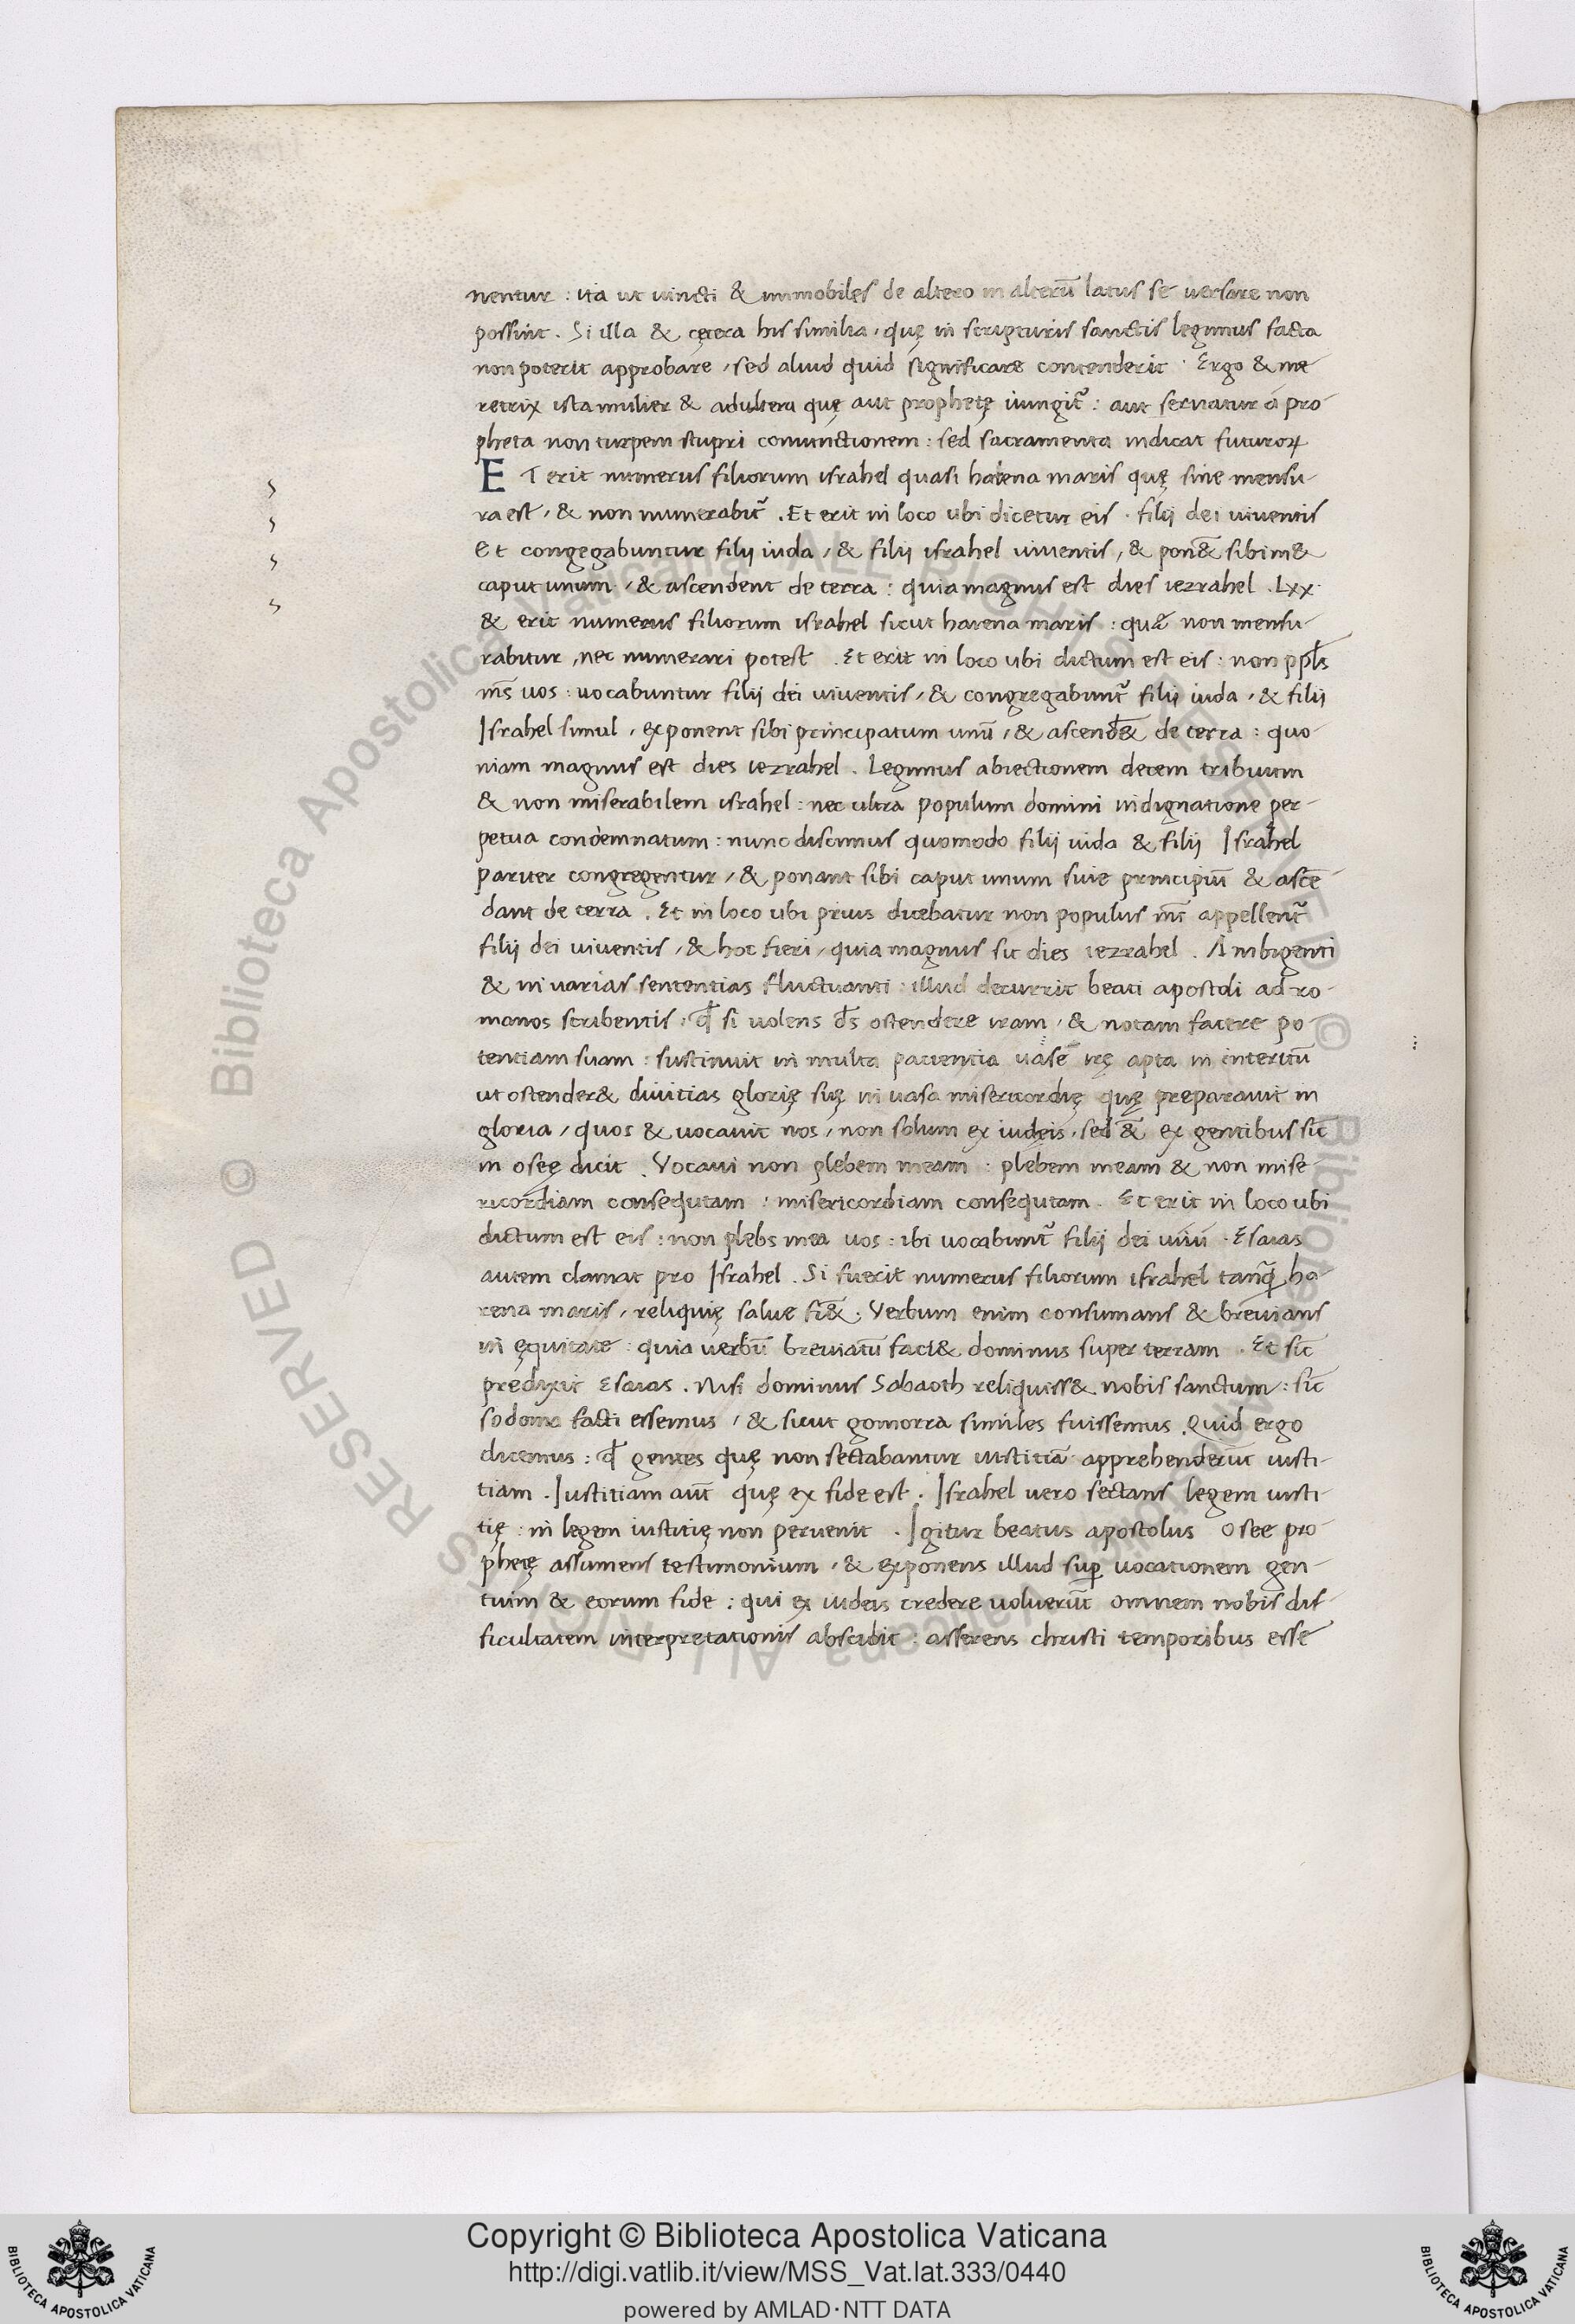 nentur : ita ut uincti & immobiles de altero in alterū latus se uersare non
possint . Si illa & cętera his similia , quę in scripturis sanctis legimus facta
non poterit approbare , sed aliud quid significare contenderit . Ergo & me
retrix ista mulier & adultera quę aut prophetę iungit᷑ : aut seruatur a pro
pheta non turpem stupri coniunctionem : sed sacramenta indicat futuroꝝ
E T erit numerus filiorum israhel quasi harena maris quę sine mensu-
ra est , & non numerabit᷑ . Et erit in loco ubi dicetur eis . filij dei uiuentis
Et congegabuntur filij iuda , & filij israhel uiuentis , & pon&̄ sibim&
caput unum , & ascendent de terra : quia magnus est dies iezrahel . Lxx.
& erit numerus filiorum israhel sicut harena maris : quæ non mensu-
rabitur , nec numerari potest . Et erit in loco ubi dictum est eis : non ppl̄s
m̄s uos : uocabuntur filij dei uiuentis , & congregabunt᷑ filij iuda , & filij
Israhel simul , exponent sibi principatum unū , & ascend&̄ de terra : quo-
niam magnus est dies iezrahel . Legimus abiectionem decem tribuum
& non miserabilem israhel : nec ultra populum domini indignatione per-
petua condemnatum : nunc discimus quomodo filij iuda & filij Israhel
pariter congregentur , & ponant sibi caput unum siue principiū & ascē-
dant de terra . Et in loco ubi prius dicebatur non populus m̄s appellent᷑
filij dei uiuentis , & hoc fieri , quia magnus sit dies iezrahel . Ambigenti
& in uarias sententias fluctuanti : illud decurrit beati apostoli ad ro-
manos scribentis , ꝙ si uolens d̄s ostendere iram , & notam facere po-
tentiam suam : sustinuit in multa patientia uasē irę apta in interitū
ut ostender& diuitias glorię suę in uasa misericordię quę preparauit in
gloria , quos & uocauit nos , non solum ex iudeis , sed & ex gentibus sic̄
in oseę dicit . Vocaui non plebem meam : plebem meam & non mise-
ricordiam consequtam : misericordiam consequtam . Et erit in loco ubi
dictum est eis : non plebs mea uos : ibi uocabunt᷑ filij dei uiui . Esaias
autem clamat pro Israhel . Si fuerit numerus filiorum israhel tanq̄ ha-
rena maris , reliquię salue fi&̄ . Verbum enim consumans & breuians
in ęquitate : quia uerbū breuiatū faci& dominus super terram . Et sic̄
predixit Esaias . Nisi dominus Sabaoth reliquiss& nobis sanctum : sic̄
sodoma facti essemus , & sicut gomorra similes fuissemus . Quid ergo
dicemus : ꝙ gentes quę non sectabantur iustitiā apprehenderūt iusti-
tiam . Iustitiam aūt quę ex fide est . Israhel uero sectans legem iusti-
tię : in legem iustitię non peruenit . Igitur beatus apostolus Osee pro-
phetę assumens testimonium , & exponens illud suꝑ uocationem gen-
tium & eorum fide : qui ex iudeis credere uoluerūt omnem nobis dif-
ficultatem interpretationis abscidit : asserens christi temporibus esse
Copyright © Biblioteca Apostolica Vaticana
http://digi.vatlib.it/view/MSS_Vat.lat.333/0440
powered by AMLAD·NTT DATA